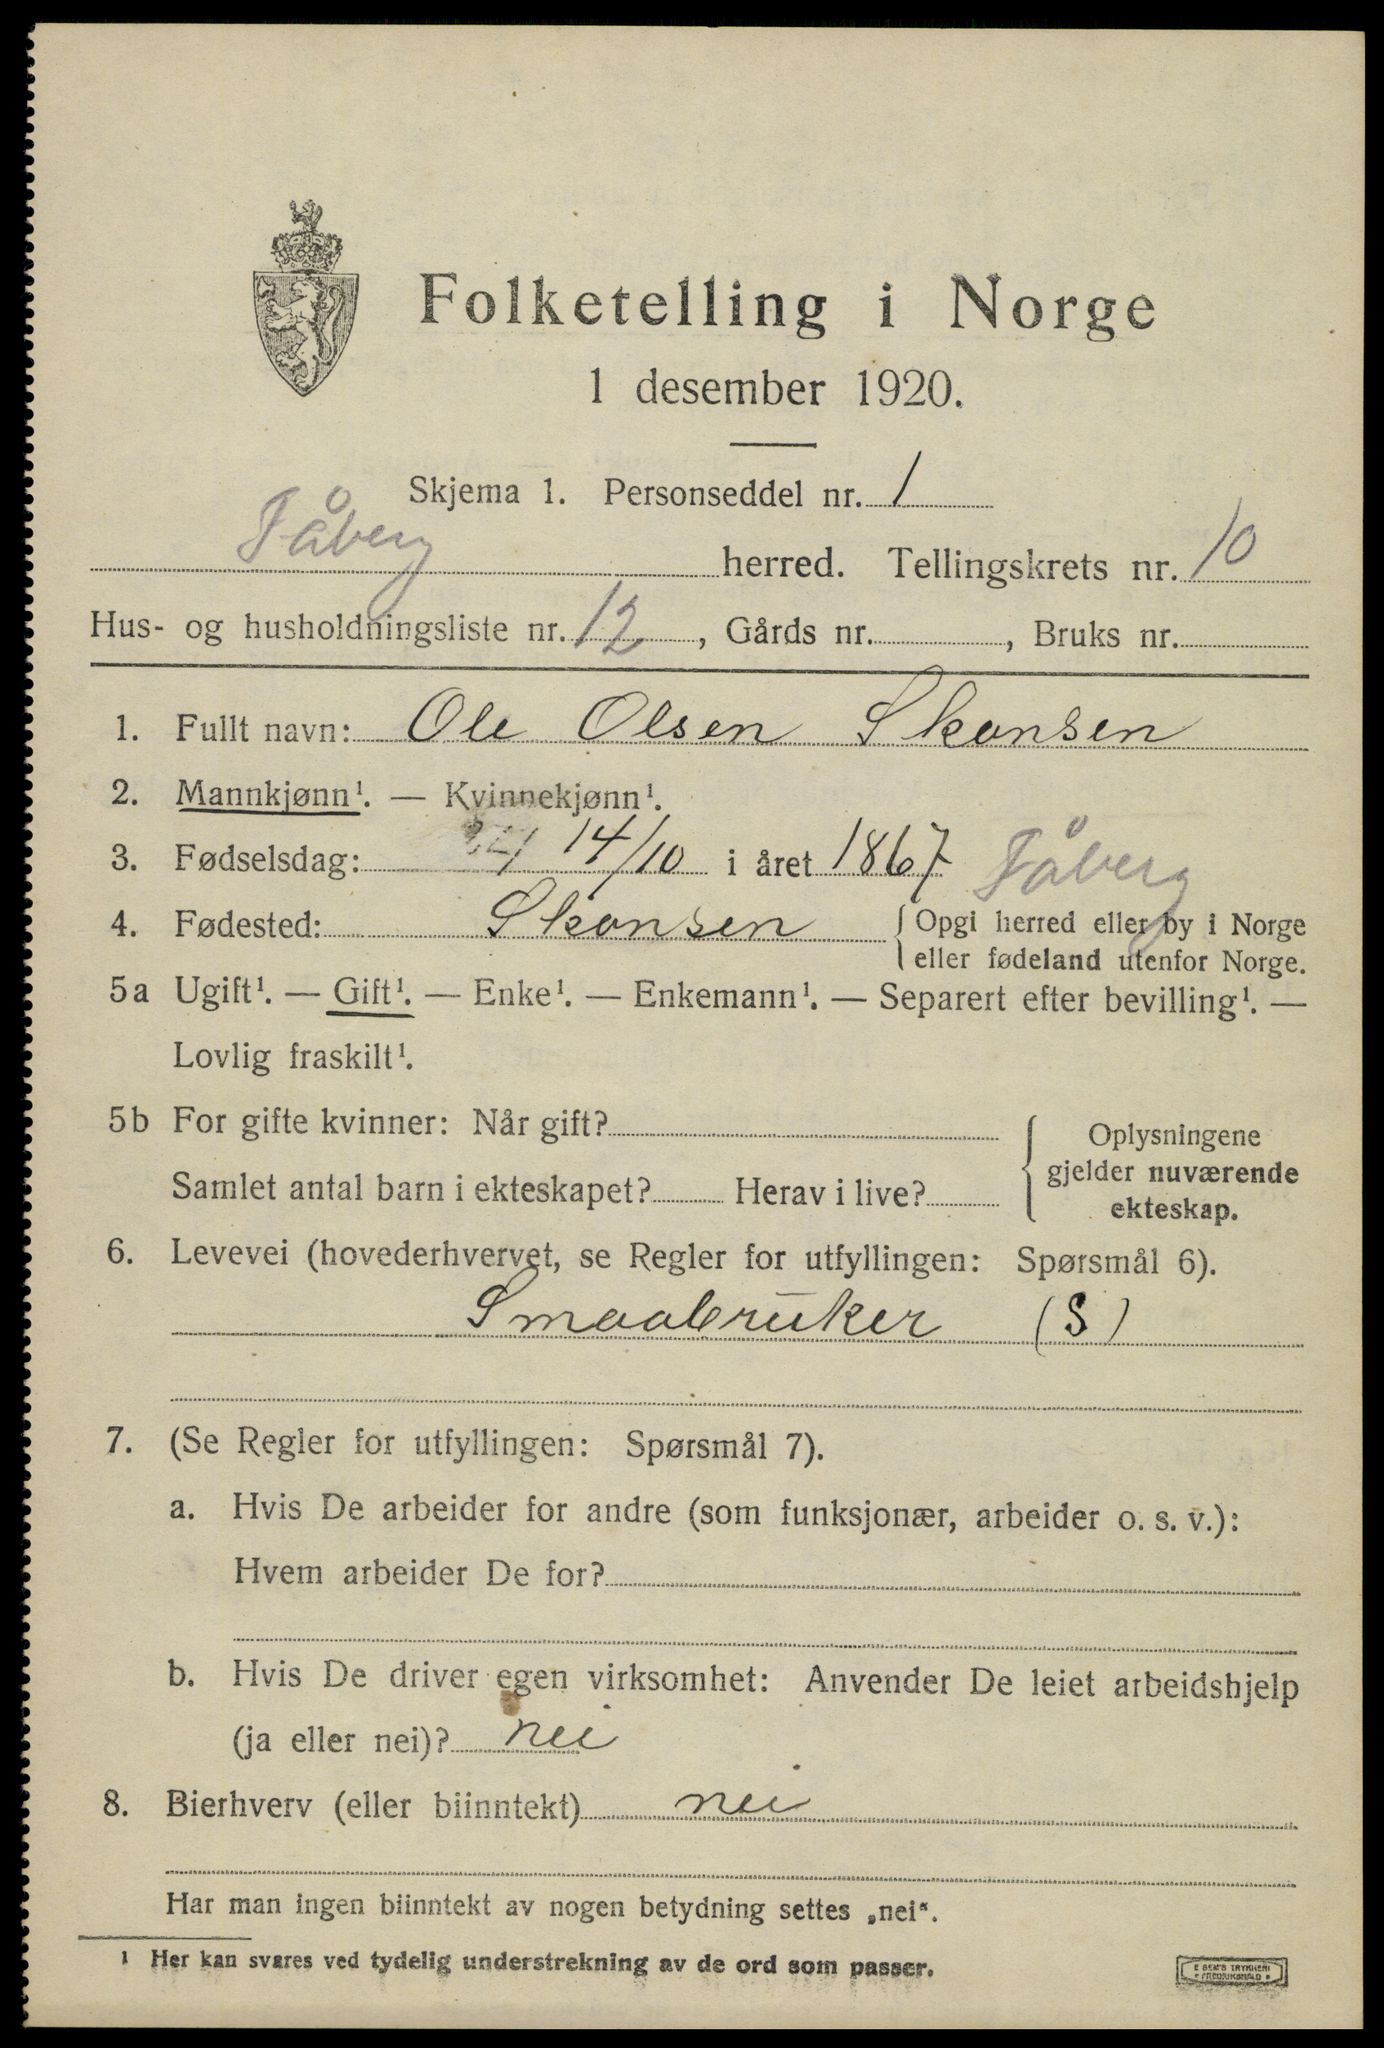 Folketelling i Norge
1 desember 1920.
Skjema 1. Personseddel nr. 1
Fåberg herred. Tellingskrets nr. 10
Hus- og husholdningsliste nr. 12, Gårds nr. , Bruks nr.
1. Fullt navn: Ole Olsen Skansen
2. Mannkjønn¹. — Kvinnekjønn¹.
3. Fødselsdag: 14/10 i året 1867 Fåberg
4. Fødested: Skansen { Opgi herred eller by i Norge
eller fødeland utenfor Norge.
5a Ugift¹. — Gift¹. — Enke¹. — Enkemann¹. — Separert efter bevilling¹. —
Lovlig fraskilt¹.
5b For gifte kvinner: Når gift?
Samlet antal barn i ekteskapet? Herav i live?
{ Oplysningene
gjelder nuværende
ekteskap.
6. Levevei (hovederhvervet, se Regler for utfyllingen: Spørsmål 6).
Smaabruker (S)
7. (Se Regler for utfyllingen: Spørsmål 7).
a. Hvis De arbeider for andre (som funksjonær, arbeider o. s. v.):
Hvem arbeider De for?
b. Hvis De driver egen virksomhet: Anvender De leiet arbeidshjelp
(ja eller nei)? nei
8. Bierhverv (eller biinntekt) nei
Har man ingen biinntekt av nogen betydning settes „nei“.
¹ Her kan svares ved tydelig understrekning av de ord som passer.